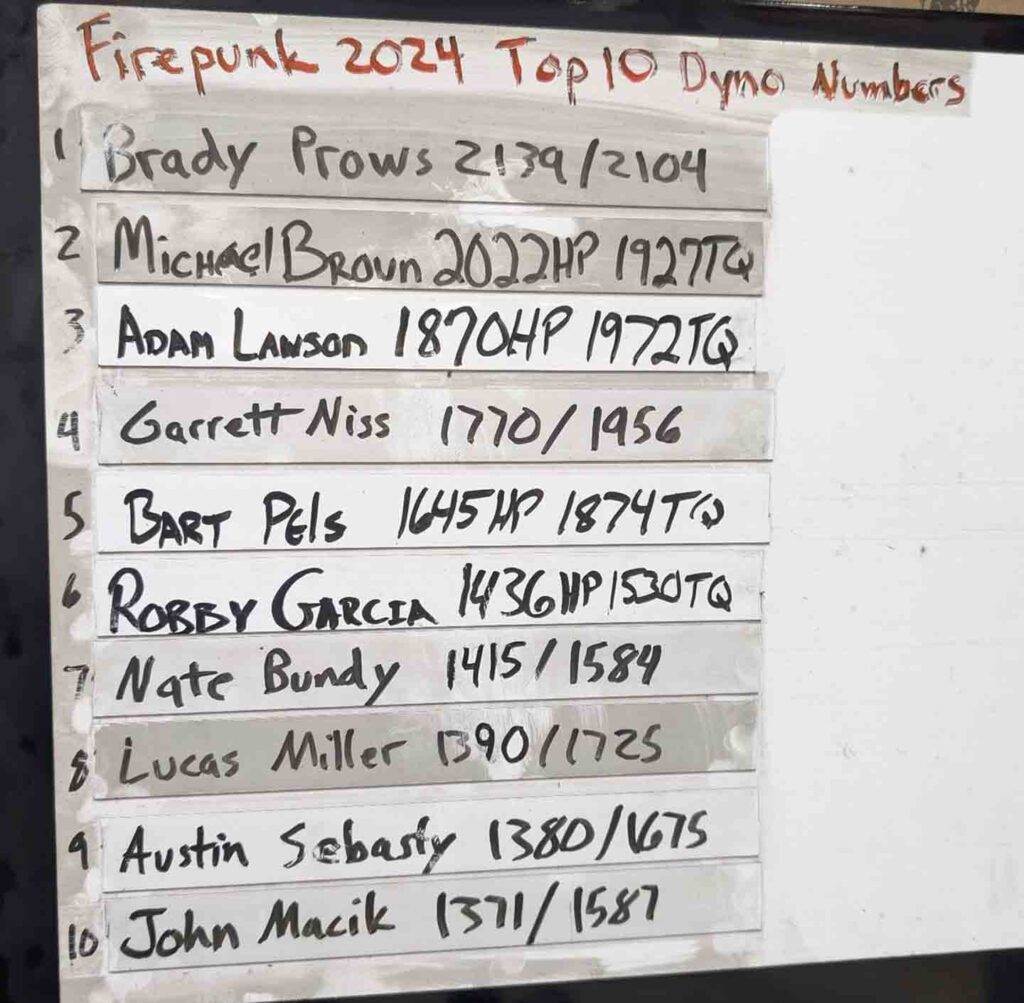 Firepunk 2024 Top 10 Dyno Numbers
1 Brady Prows 2139/2104
2 Michael Broun 2022HP 1927TQ
3 Adam Lawson 1870HP 1972TQ
4 Garrett Niss 1770/1956
5 Bart Pels 1645HP 1874TQ
6 Robby Garcia 1436HP 1530TQ
7 Nate Bundy 1415/1584
8 Lucas Miller 1390/1725
9 Austin Sebasty 1380/1675
10 John Macik 1371/1587